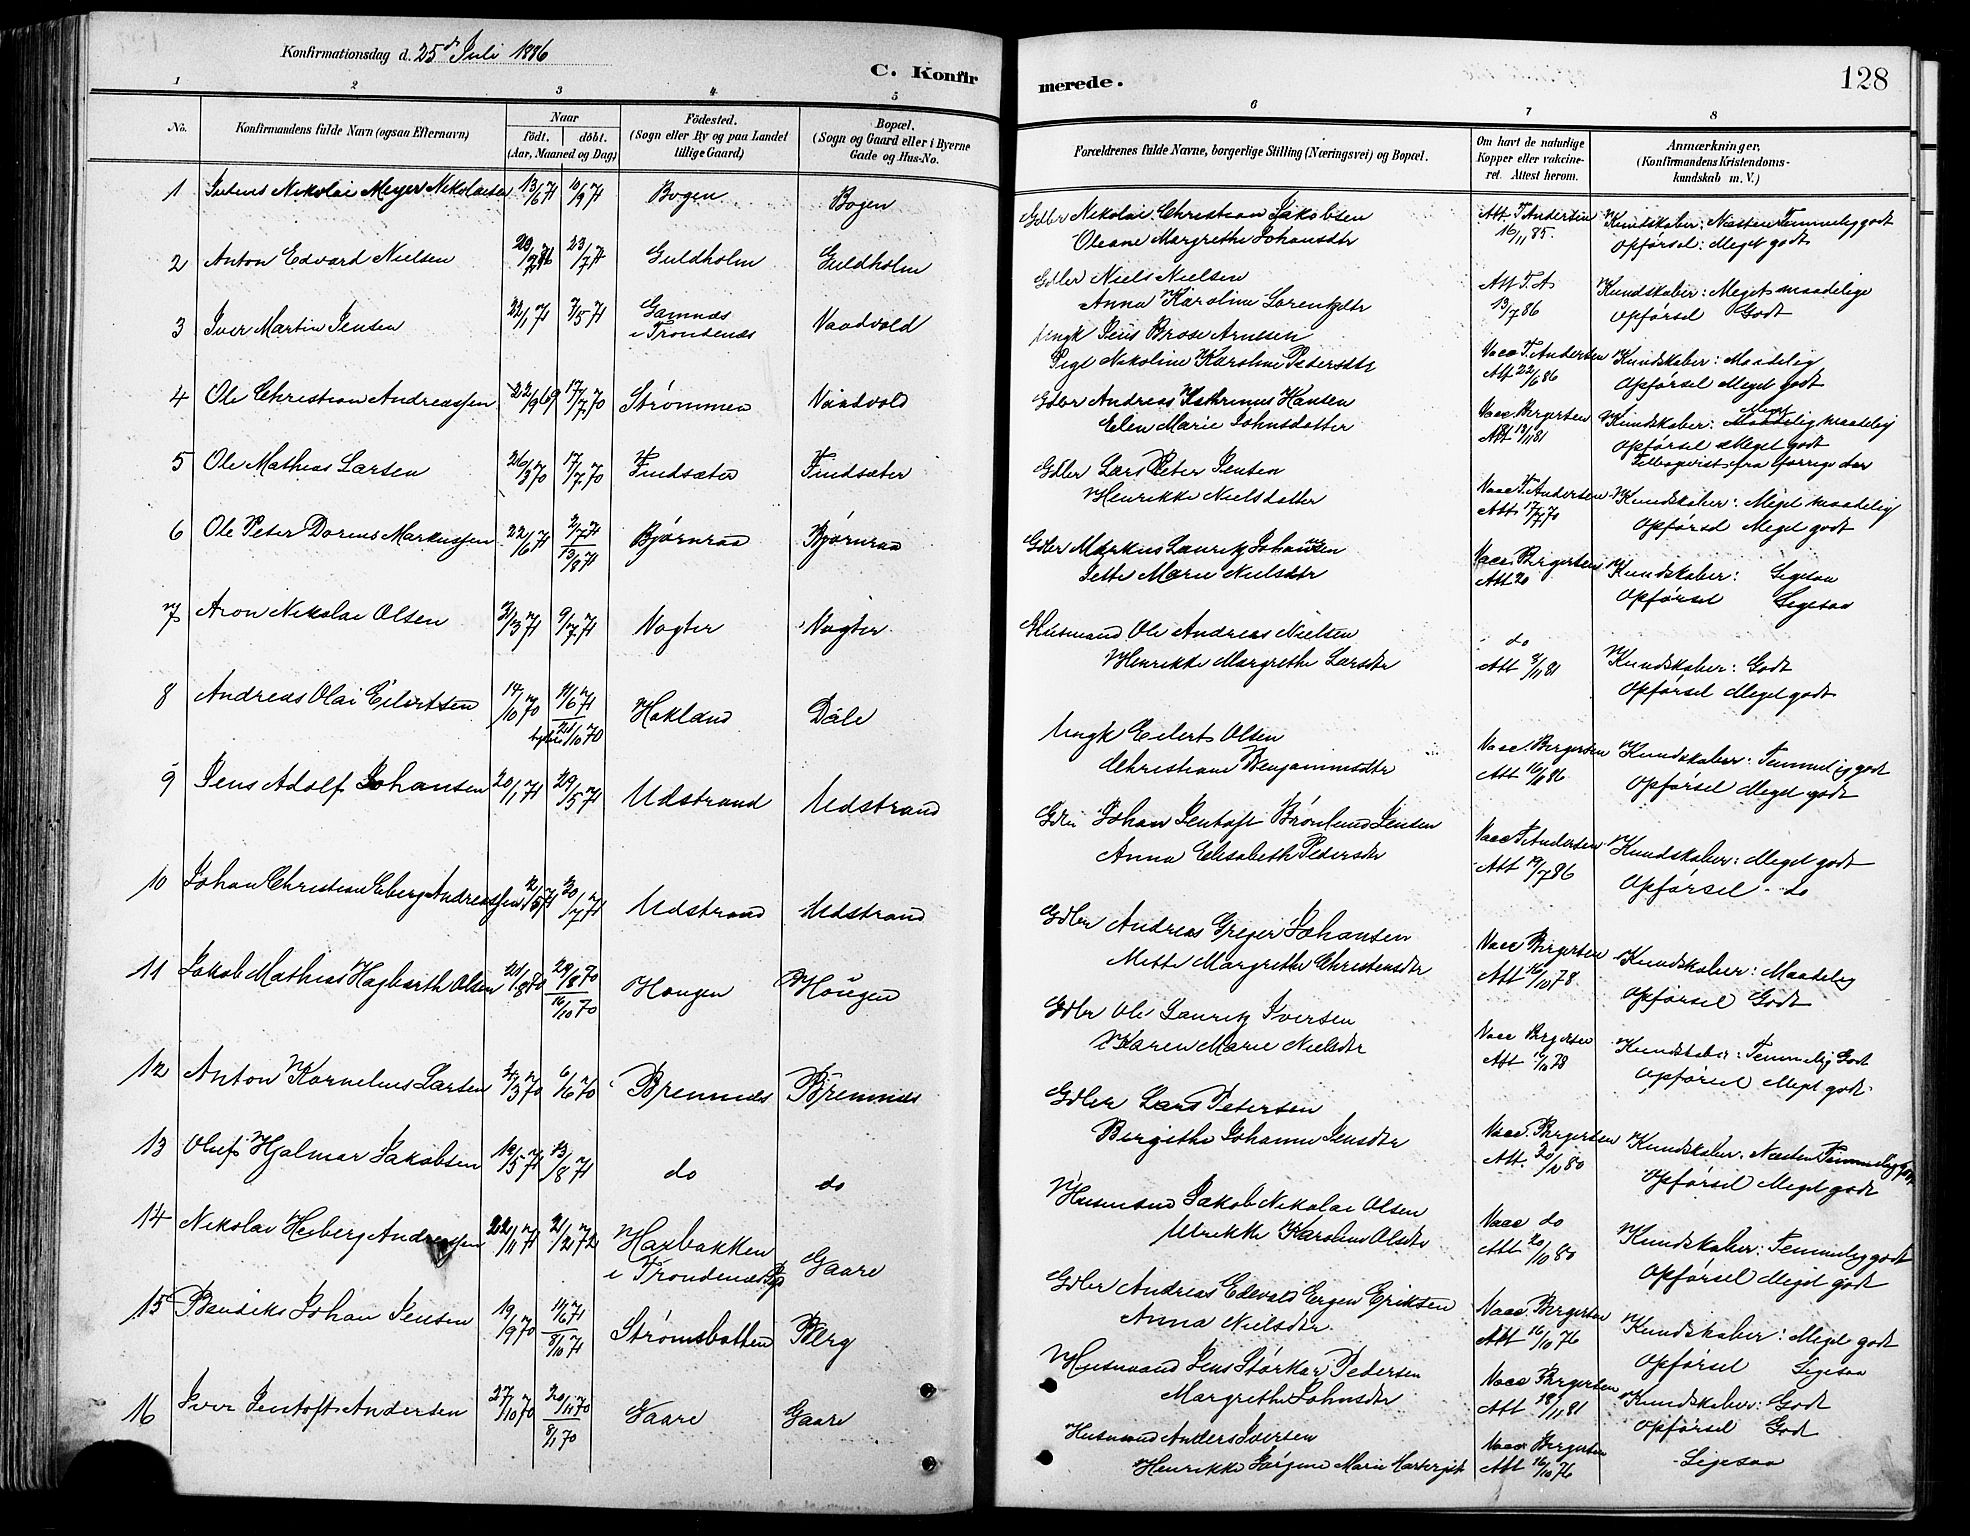 Konfirmationsdag d. 25de Juli 1886
C. Konfir
merede.
128
1 2 3 4 5 6 7 8
No.
Konfirmandens fulde Navn (ogsaa Efternavn)
Naar
födt. döbt.
(Aar, Maaned og Dag)
Födested.
(Sogn eller By og paa Landet
tillige Gaard)
Bopæl.
(Sogn og Gaard eller i Byerne
Gade og Hus-No.
Forældrenes fulde Navne, borgerlige Stilling (Næringsvei) og Bopæl.
Om havt de naturlige
Kopper eller vakcine-
ret. Attest herom.
Anmærkninger,
(Konfirmandens Kristendoms-
kundskab m. V.)
1 Nikolai Meyer Nikolaisen 13/6 71 10/9 71 Bogen Bogen
Gdbr Nikolai Christian Jakobsen Att. T. Andersen Kundskaber: Næsten Temmelig godt
Oleane Margrethe Johansdtr 16/11 85. Opførsel: Meget godt
2 Anton Edvard Nielsen 23/7 71 Guldholm Guldholm
Gdbr Niels Nielsen Att T. A Kundskaber: Meget maadelige
Anna Karolina Lorentzdtr 13/7 86 Opførsel Godt
3 Iver Martin Jensen 22/1 71 7/5 71 Gamnæs Vaadvold
i Trondenæs
Ungk Jens Brose Arnesen Vacc T. Andersen Kundskaber: Maadelig
Pige Nikoline Karoline Pedersdtr Att 22/6 86 Opførsel Meget godt
4 Ole Christian Andreassen 22/9 69 17/7 70 Strømmen Vaadvold
Gdbr Andreas Kathrinus Hansen Vacc Bergersen Kundskaber: Meget maadelig
Elen Marie Johnsdatter Att 18/11 81 Opførsel Meget godt
Tilbagevist fra forrige Aar
5 Ole Mathias Larsen 26/3 70 17/7 70 Findsæter Findsæter
Gdbr Lars Peter Jensen Vacc T. Andersen Kundskaber: Meget maadelig
Henrikke Nielsdatter Att 17/7 70 Opførsel Meget godt
6 Ole Peter Dorius Markussen 22/6 71 2/7 71 Bjørnraa Bjørnraa
13/8 71
Gdbr Markus Lauritz Johansen Vacc. Bergersen Kundskaber: Ligesaa
Jette Marie Nielsdtr Att 20 Opførsel Ligesaa
7 Aron Nikolai Olsen 3/3 71 9/7 71 Vogter Vogter
Husmand Ole Andreas Nielsen do Kundskaber: Godt
Henrikke Margrethe Larsdtr Att 8/11 81 Opførsel Meget godt
8 Andreas Olai Eilertsen 14/10 70 11/6 71 Hokland Dale
21/10 70
Ungk Eilert Olsen Vacc. Bergersen Kundskaber: Temmelig godt
Christiane Benjaminsdtr Att 16/11 86 Opførsel Meget godt
9 Jens Adolf Johansen 20/1 71 29/5 71 Udstrand Udstrand
Gdbr Johan Jentoft Brønlund Jensen Vacc T. Andersen Kundskaber: Meget godt
Anna Elisabeth Pedersdtr Att 19/7 86 Opførsel do
10 Johan Christian Eberg Andreassen 12/5 71 30/7 71 Udstrand Udstrand
Gdbr Andreas Greger Johansen Vacc Bergersen Kundskaber: Maadelig
Mette Margrethe Christensdtr Att 16/10 78 Opførsel Godt
11 Jakob Mathias Hagbarth Olsen 21/8 70 29/8 70 Hougen Hougen
16/10 70
Gdbr Ole Lauritz Iversen Vacc Bergersen Kundskaber: Temmelig Godt
Karen Marie Nielsdtr Att 16/10 78 Opførsel Meget godt
12 Anton Kornelius Larsen 6/6 70 Bremnæs Bremnæs
Gdbr Lars Petersen Vacc. Bergersen Kundskaber. Næsten Temmelig godt
Birgithe Johanne Jensdtr Att. 20/10 80 Opførsel Meget godt
13 Oluf Hjalmar Jakobsen 19/5 71 13/8 71 do do
Husmand Jakob Nikolai Olsen Vacc do Kundskaber: Temmelig godt
Ulrikke Karoline Olsdtr Att 20/10 80 Opførsel Meget godt
14 Nikolai Heiberg Andreassen 22/11 71 2/2 72 Haxbakken Gaare
i Trondenæs Pg
Gdbr Andreas Edevald Ergen Eriksen Vacc Bergersen Kundskaber: Meget godt
Anna Nielsdtr Att 16/10 76 Opførsel Ligesaa
15 Bendiks Johan Jensen 19/9 70 11/6 71 Strømsbotten Berg
8/10 71
Husmand Jens Størkar Pedersen Vacc Bergersen Kundskaber: Godt
Margrethe Johnsdtr Att 18/11 81 Opførsel Godt
16 Iver Jentoft Andersen 27/10 70 20/11 70 Gaare Gaare
8/1 70
Husmand Anders Iversen Vacc Bergersen Ligesaa
Henrikke Jørgine Marie Att 16/10 76